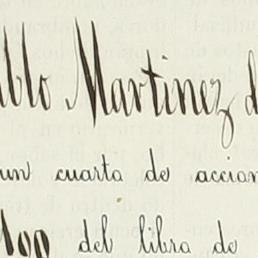 ablo Martinez d
un cuarto de accion
del libro de